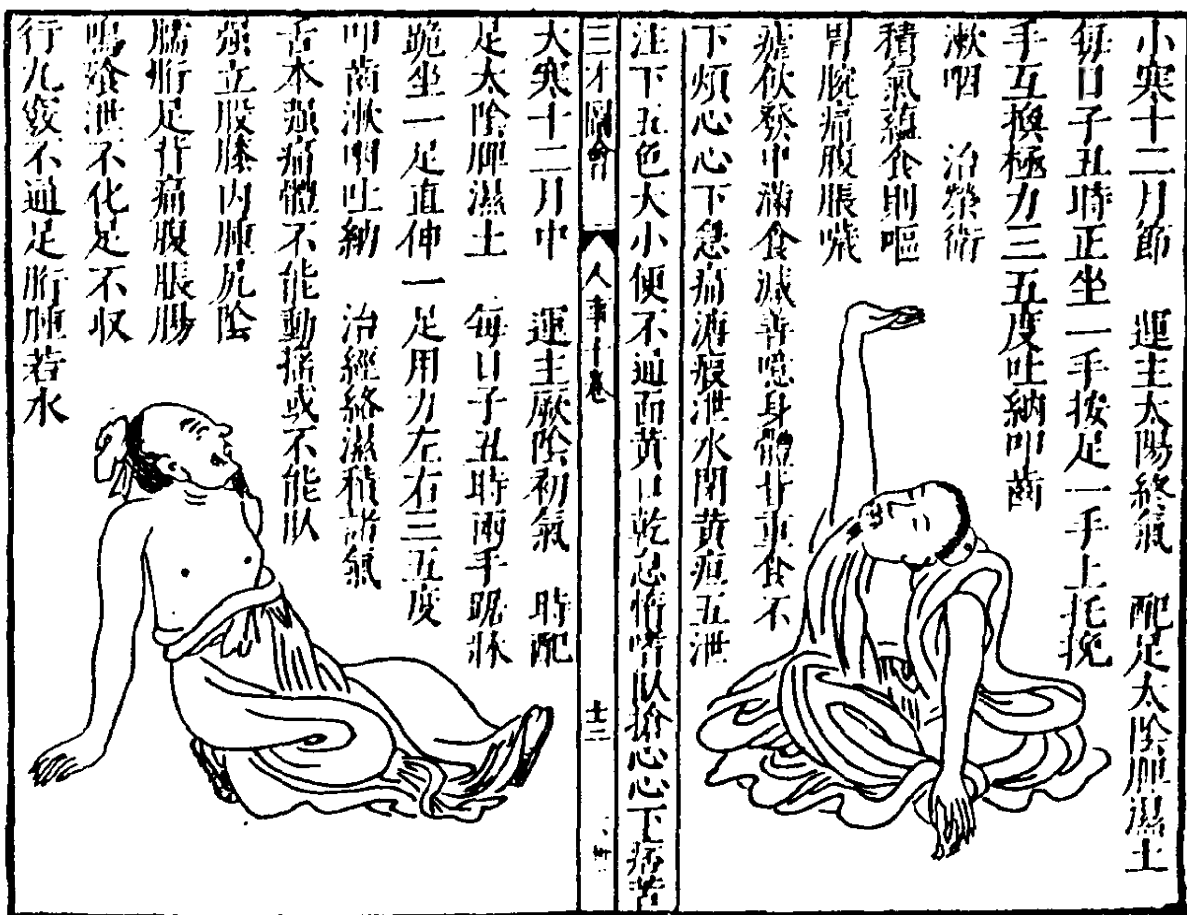 小寒十二月節　運主太陽終氣　配足太陰脾濕土
每日子丑時正坐一手按足一手上托挽
手互換極力三五度吐納叩齒
漱咽　治榮衛
積氣蘊食則嘔
胃脘痛腹脹噦
瘧飲發中滿食減善噫身體皆重食不
下煩心心下急痛溏瘕泄水閉黃疸五泄
注下五色大小便不通面黃口乾怠惰嗜臥搶心心下痞苦
三才圖會　人事十卷　十二
大寒十二月中　運主厥陰初氣　時配
足太陰脾濕土　每日子丑時兩手踞牀
跪坐一足直伸一足用力左右三五度
叩齒漱咽吐納　治經絡濕積諸氣
舌本强痛體不能動搖或不能臥
强立股膝內腫尻陰
臑胻足背痛腹脹腸
鳴飱泄不化足不収
行九竅不通足胻腫若水